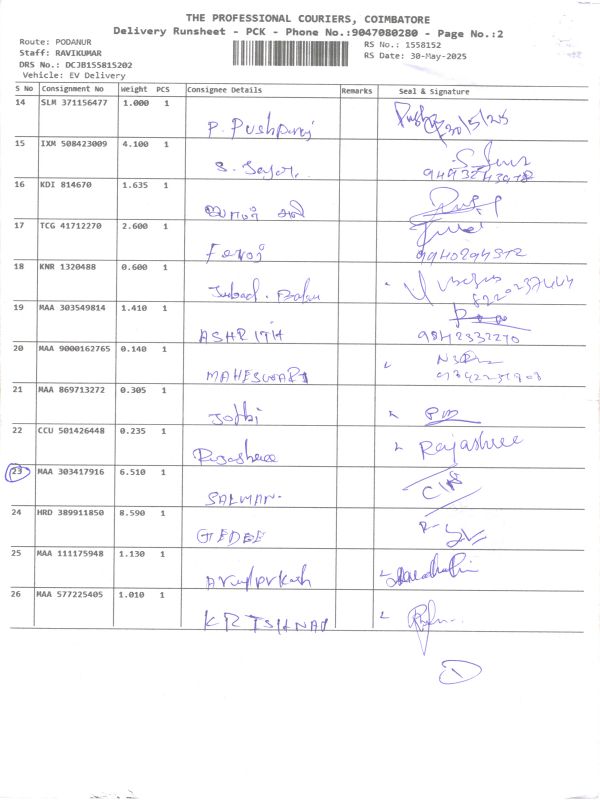 THE PROFESSIONAL COURIERS, COIMBATORE
Delivery Runsheet - PCK - Phone No.:9047080280 - Page No.:2
Route: PODANUR
Staff: RAVIKUMAR
DRS No.: DCJB155815202
Vehicle: EV Delivery
RS No.: 1558152
RS Date: 30-May-2025
S No Consignment No Weight PCS Consignee Details Remarks Seal & Signature
14 SLM 371156477 1.000 1
P. Pushparaj 30/5/25
15 IXM 508423009 4.100 1
S.
16 KDI 814670 1.635 1
அலி
17 TCG 41712270 2.600 1
Feroj 9940294312
18 KNR 1320488 0.600 1
Babu
19 MAA 303549814 1.410 1
ASHRITH 9842332270
20 MAA 9000162765 0.140 1
MAHESWARI
21 MAA 869713272 0.305 1
Jothi
22 CCU 501426448 0.235 1
Rajashree Rajashree
23 MAA 303417916 6.510 1
SALMAN
24 HRD 389911850 8.590 1
GEDEE
25 MAA 111175948 1.130 1
26 MAA 577225405 1.010 1
KRISHNAN
1